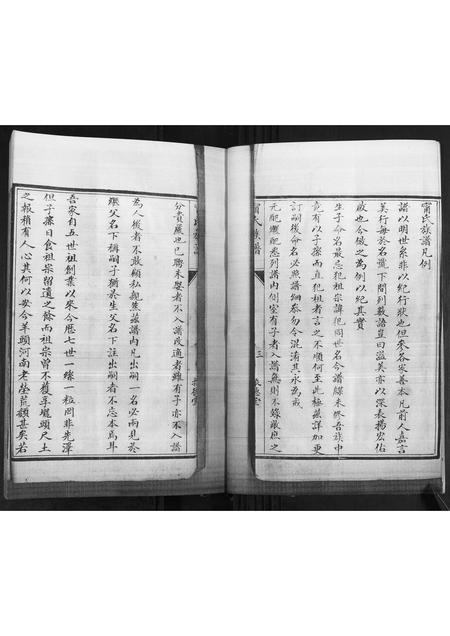 甯氏族譜凡例
譜以明世系非以紀行狀也但來各家善本凡前人嘉言
美行每於名號下間列數語豈曰溢美亦以深表揚宏佑
啟也今倣之為例以紀其實
生子命名最忌犯祖宗諱犯同世名今譜牒未修吾族中
竟有以子孫而直犯祖者言之不順何至此極茲詳加更
訂嗣後命名必照譜細叅勿令混淆其永為戒
元配繼配悉列譜內側室有子者入譜無則不錄嚴庶之
分貴賤也已聘未娶者不入譜改適者雖有子亦不入譜
為人後者不敢顧私親茲譜內凡出嗣一名必兩見於
繼父名下稱嗣子猶於生父名下註出嗣者不忘本焉耳
吾家自五世祖創業以來今歷七世一絲一粒罔非先澤
但子孫日食祖宗留遺之餘而祖宗曾不獲享壠頭尺土
之報稍有人心其何以安今羊頭河南老塋荒頹甚矣若
三